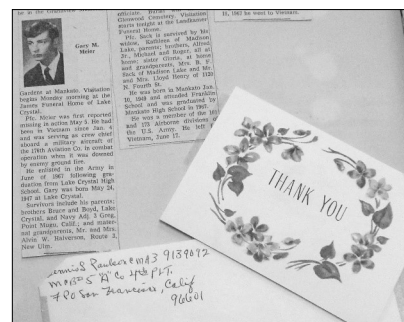 in the
Gary M.
Meier
Gardens at Mankato. Visitation
begins Monday morning at the
James Funeral Home of Lake
Crystal.
Pfc. Meier was first reported
missing in action May 5. He had
been in Vietnam since Jan. 4
and was serving as crew chief
aboard a military aircraft of
the 176th Aviation Co. in combat
operation when it was downed
by enemy ground fire.
He enlisted in the Army in
June of 1967 following gra-
duation from Lake Crystal High
School. Gary was born May 24,
1947 at Lake Crystal.
Survivors include his parents;
brothers Bruce and Boyd, Lake
Crystal, and Navy Adj. 3 Greg,
Point Mugu, Calif.; and mater-
nal grandparents, Mr. and Mrs.
Alvin W. Halverson, Route 3,
New Ulm.
Glenwood Cemetery. Visitation
starts tonight at the Landkamer
Funeral Home.
Pfc. Sack is survived by his
widow, Kathleen of Madison
Lake, parents; brothers, Alfred
Jr., Michael and Roger, all at
home; sister Gloria, at home
and grandparents, Mrs. B. F.
Sack of Madison Lake and Mr.
and Mrs. Lloyd Henry of 1120
N. Fourth St.
He was born in Mankato Jan.
10, 1949 and attended Franklin
School and was graduated by
Mankato High School in 1967.
He was a member of the 101
and 173 Airborne divisions of
the U.S. Army. He left for
Vietnam, June 17.
1967 he went to Vietnam.
THANK YOU
Paulson CMA3 9139092
MCB#5 "A" Co 4th PLT.
FPO San Francisco, Calif
96601